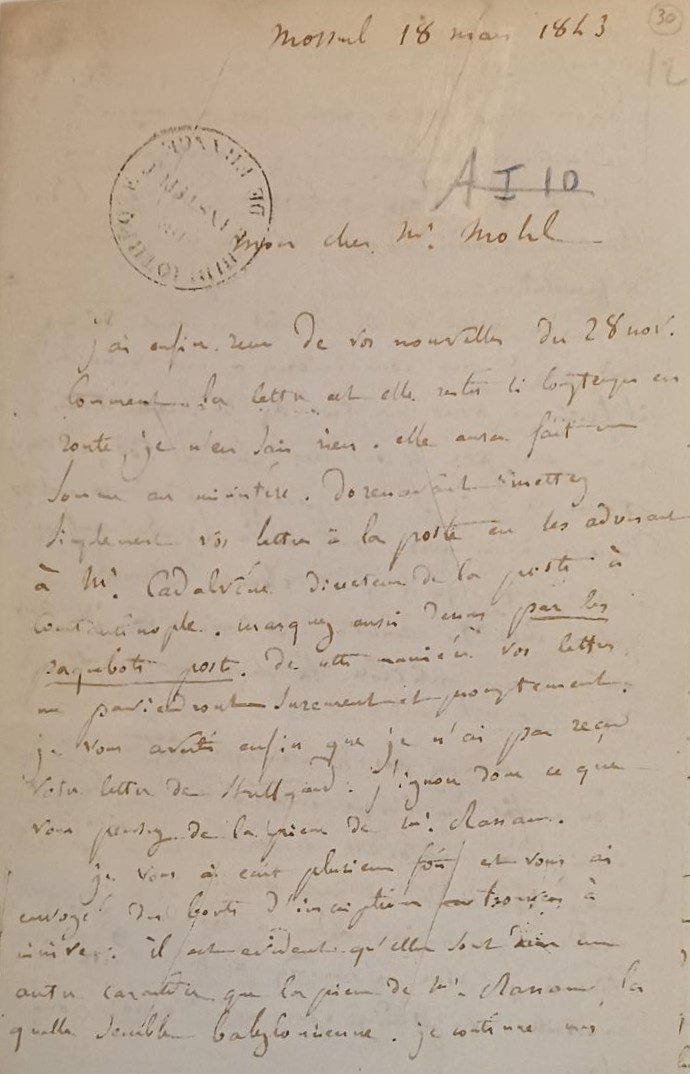 30
12
Mossul 18 mars 1843
A I 10
mon cher Mr. Mohl
j'ai enfin reçu de vos nouvelles du 28 nov.
Comment la lettre est elle restée si longtemps en
route, je n'en sais rien. elle aura fait un
somme au ministère. Dorenavant mettez
simplement vos lettres à la poste en les adressant
à Mr. Cadalvène directeur de la poste à
Constantinople. marquez aussi dessus par les
paquebots poste. De cette manière vos lettres
me parviendront surement et promptement.
je vous avertis enfin que je n'ai pas reçu
votre lettre de Stuttgard. J'ignore donc ce que
vous pensez de la pierre de Mr. Rassam.
je vous ai écrit plusieurs fois et vous ai
envoyé des bouts d'inscription trouvés à
ninive. il est evident qu'elles sont dans un
autre caractère que la pierre de Mr. Rassam, la
quelle semble babylonienne. je continue mes